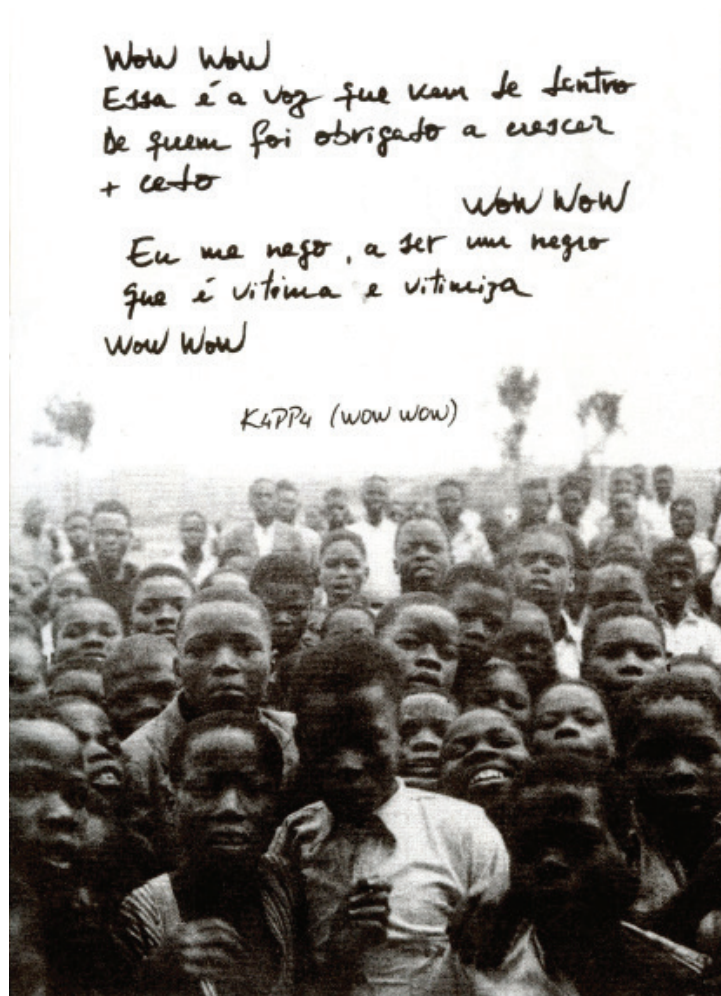 WOW WOW
Essa é a voz que vem de dentro
De quem foi obrigado a crescer
+ cedo
WOW WOW
Eu me nego, a ser um negro
que é vítima e vitimiza
WOW WOW
K4PP4 (WOW WOW)